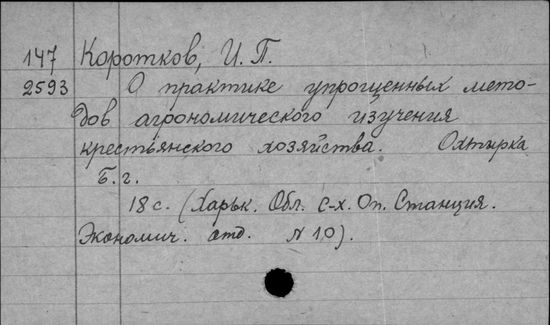 147 Коротков, И. П.
2593 О практике упрощенных мето-
дов агрономического изучения
крестьянского хозяйства. Охтырка
Б. г.
18 с. (Харьк. Обл. С-х. Оп. Станция.
Экономич. отд. N 10).